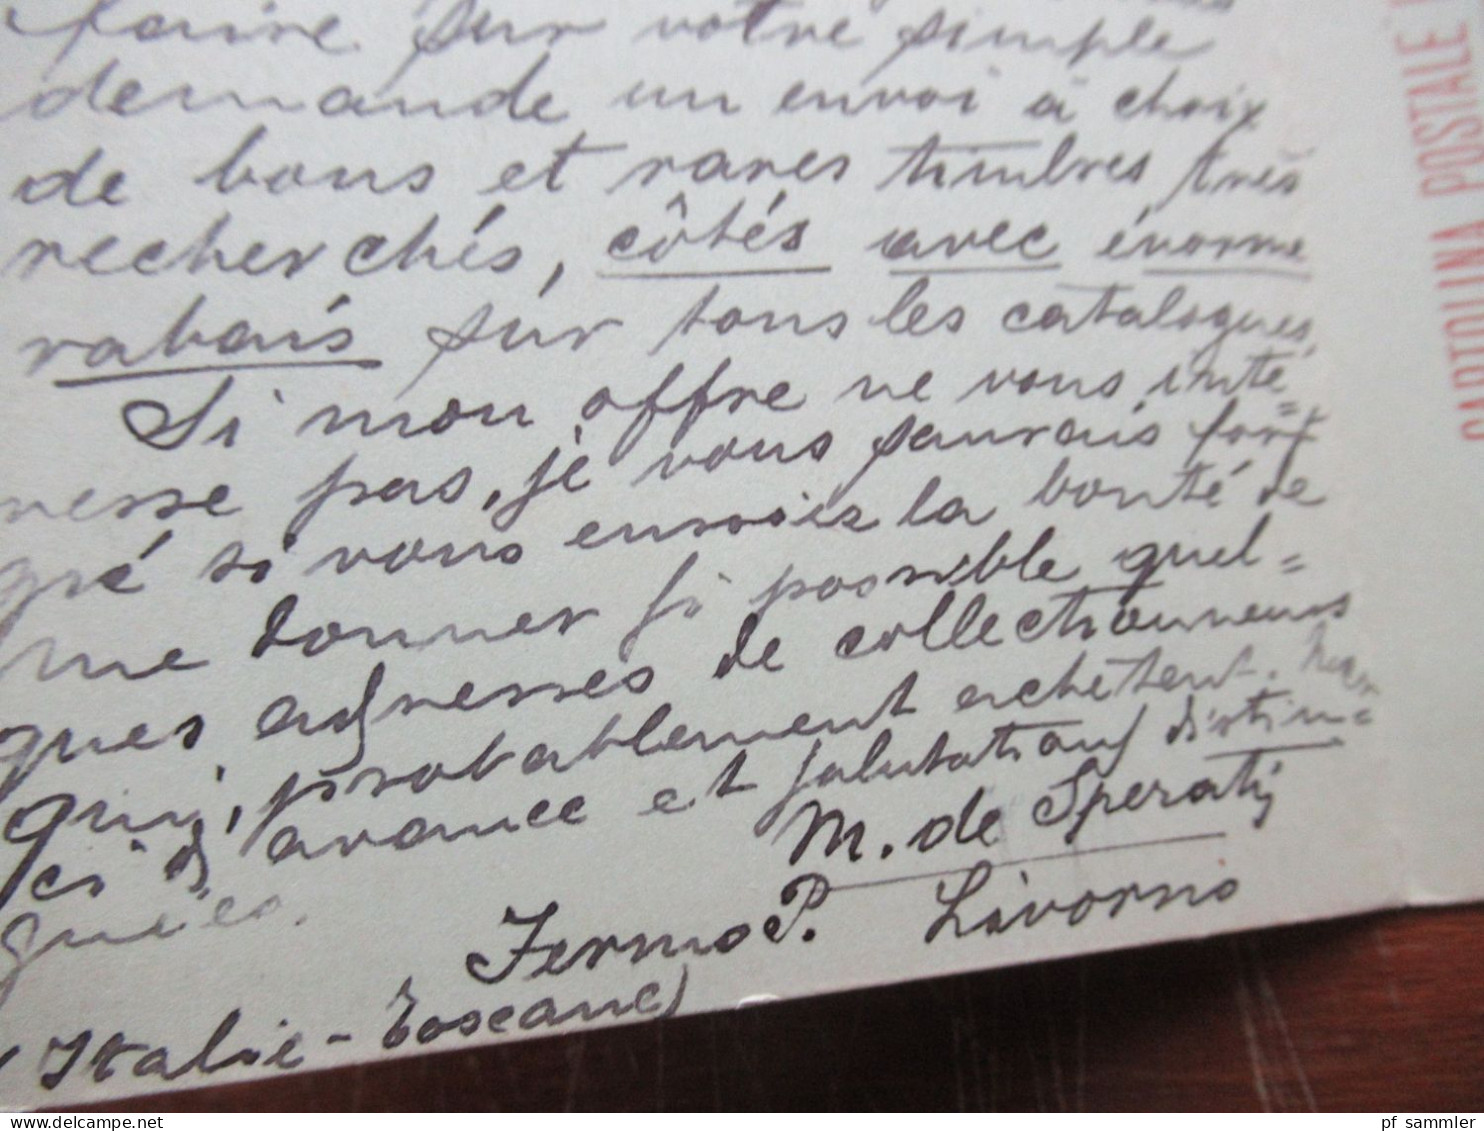 faire sur votre simple
demande un envoi à choix
de bons et rares timbres très
recherchés, côtés avec énorme
rabais sur tous les catalogues.
Si mon offre ne vous inté=
resse pas, je vous saurais fort
gré si vous envoiez la bonté de
me donner si possible quel=
ques adresses de collectionneurs
qui, probablement achètent. Mer
ci d'avance et salutations distin=
guées.
M. de Sperati
Fermo P. Livorno
(Italie - Toscane)
CARTOLINA POSTALE
pf_sammler